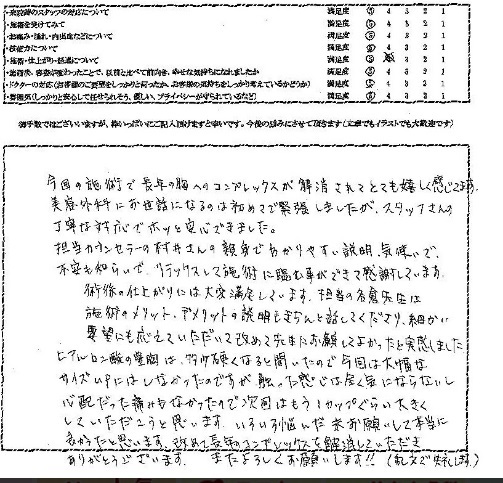 ・来院時のスタッフの対応について 満足度 ⑤ 4 3 2 1
・施術を受けてみて 満足度 ⑤ 4 3 2 1
・お痛み・腫れ・内出血などについて 満足度 ⑤ 4 3 2 1
満足度 ⑤ 4 3 2 1
・施術・仕上がり・経過について 満足度 3 2 1
・施術後、容姿が変わったことで、以前と比べて前向き、幸せな気持ちになれましたか 満足度 ⑤ 4 3 2 1
・ドクターの対応(お客様のご要望をしっかりと伺ったか、お客様の気持ちをしっかり考えているかどうか) 満足度 ⑤ 4 3 2 1
・雰囲気(しっかりと安心して任せられそう、優しい、プライバシーが守られているなど) 満足度 ⑤ 4 3 2 1
御手数ではございますが、枠いっぱいにご記入頂けますと幸いです。今後の励みにさせて頂きます(文章でもイラストでも大歓迎です)
今回の施術で長年の胸へのコンプレックスが解消されてとても嬉しく感じてます。
美容外科にお世話になるのは初めてで緊張しましたが、スタッフさんの
丁寧な対応でホッと安心できました。
担当カウンセラーの村井さんの親身でわかりやすい説明、気味いで、
不安も和らいで、リラックスして施術に臨む事ができて感謝しています。
術後の仕上がりには大変満足しています。担当の名倉先生は
施術のメリット、デメリットの説明もきちんと話してくださり、細かい
要望にも応えていただいて改めて先生にお願いしてよかったと実感しました
ヒアルロン酸の豊胸は、多少硬くなると聞いたので今回は大幅な
サイズUPにはしなかったのですが、触った感じは全く気にならないし
心配だった痛みもなかったので次回はもう1カップぐらい大きく
していただこうと思います。いろいろ悩んだ末お願いして本当に
良かったと思います。改めて長年のコンプレックスを解消していただき
ありがとうございます。 またよろしくお願いします!! (乱文で失礼します。)